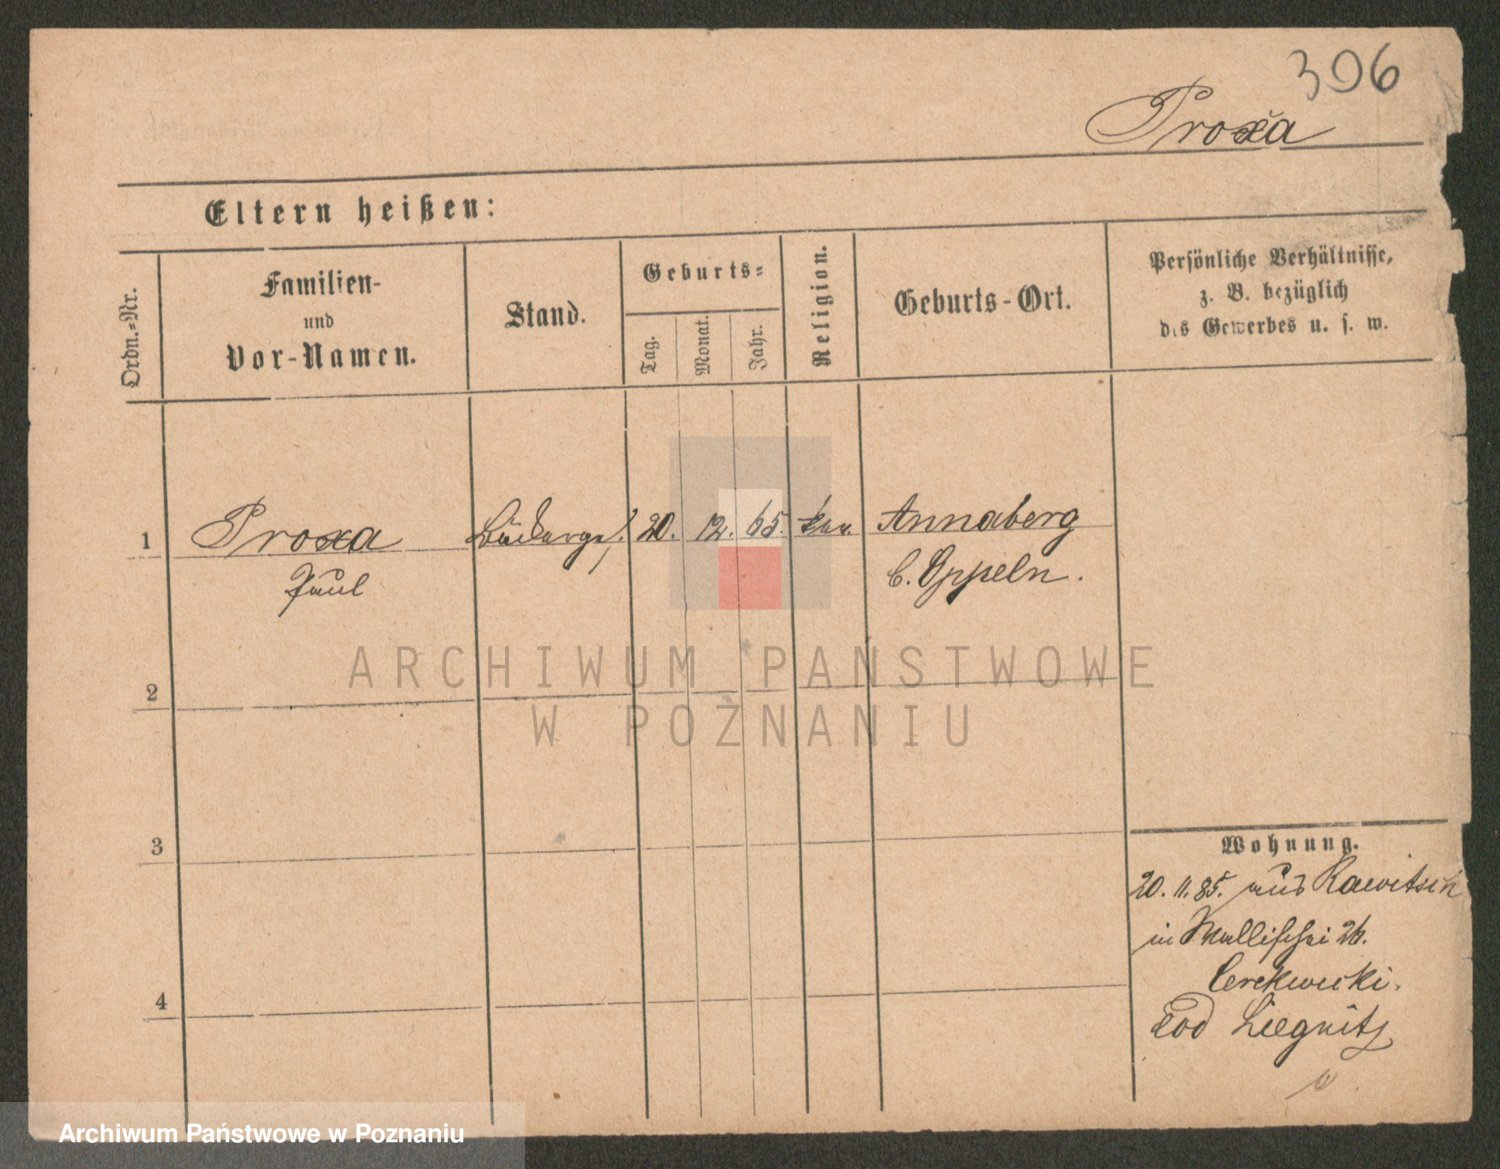 306
Proxa
Eltern heißen:
Ordn.-Nr.
Familien-
und
Vor-Namen.
Stand.
Geburts-
Tag.
Monat.
Jahr.
Religion.
Geburts-Ort.
Persönliche Verhältnisse,
z. B. bezüglich
des Gewerbes u. s. w.
1 Proxa Bäckerges. 20. 12. 65. Annaberg
Paul b. Oppeln.
ARCHIWUM PAŃSTWOWE
W POZNANIU
2
3
4
Wohnung.
20. 11. 85. aus Rawitsch
in Wallischei 26.
Cerekwicki.
Liegnitz
Archiwum Państwowe w Poznaniu